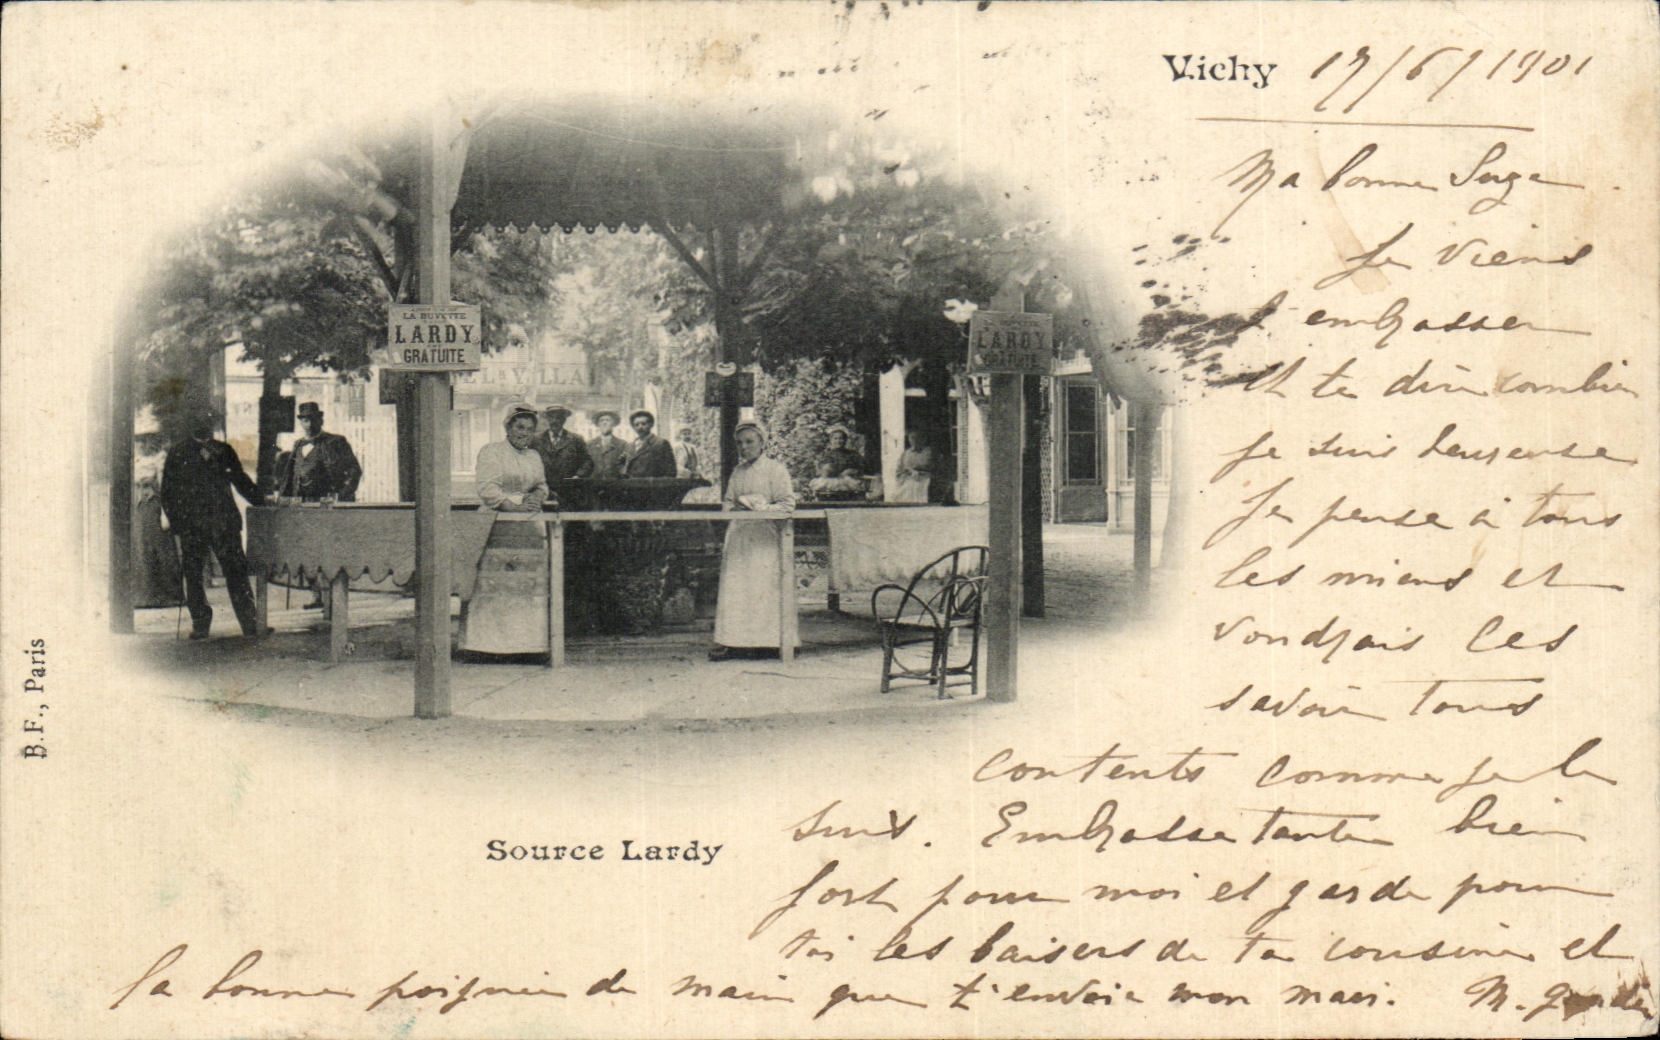 Vichy 17/6/1901
Ma bonne Suze
Je viens
t'embrasser
et te dire combien
je suis heureuse
Je pense à tous
les miens et
voudrais les
savoir tous
contents comme je le
suis. Embrasse tante bien
fort pour moi et garde pour
toi les baisers de ta cousine et
la bonne poignée de main que t'envoie mon mari. M.
LA BUVETTE
LARDY
EST
GRATUITE
LARDY
GRATUITE
Source Lardy
B.F., Paris